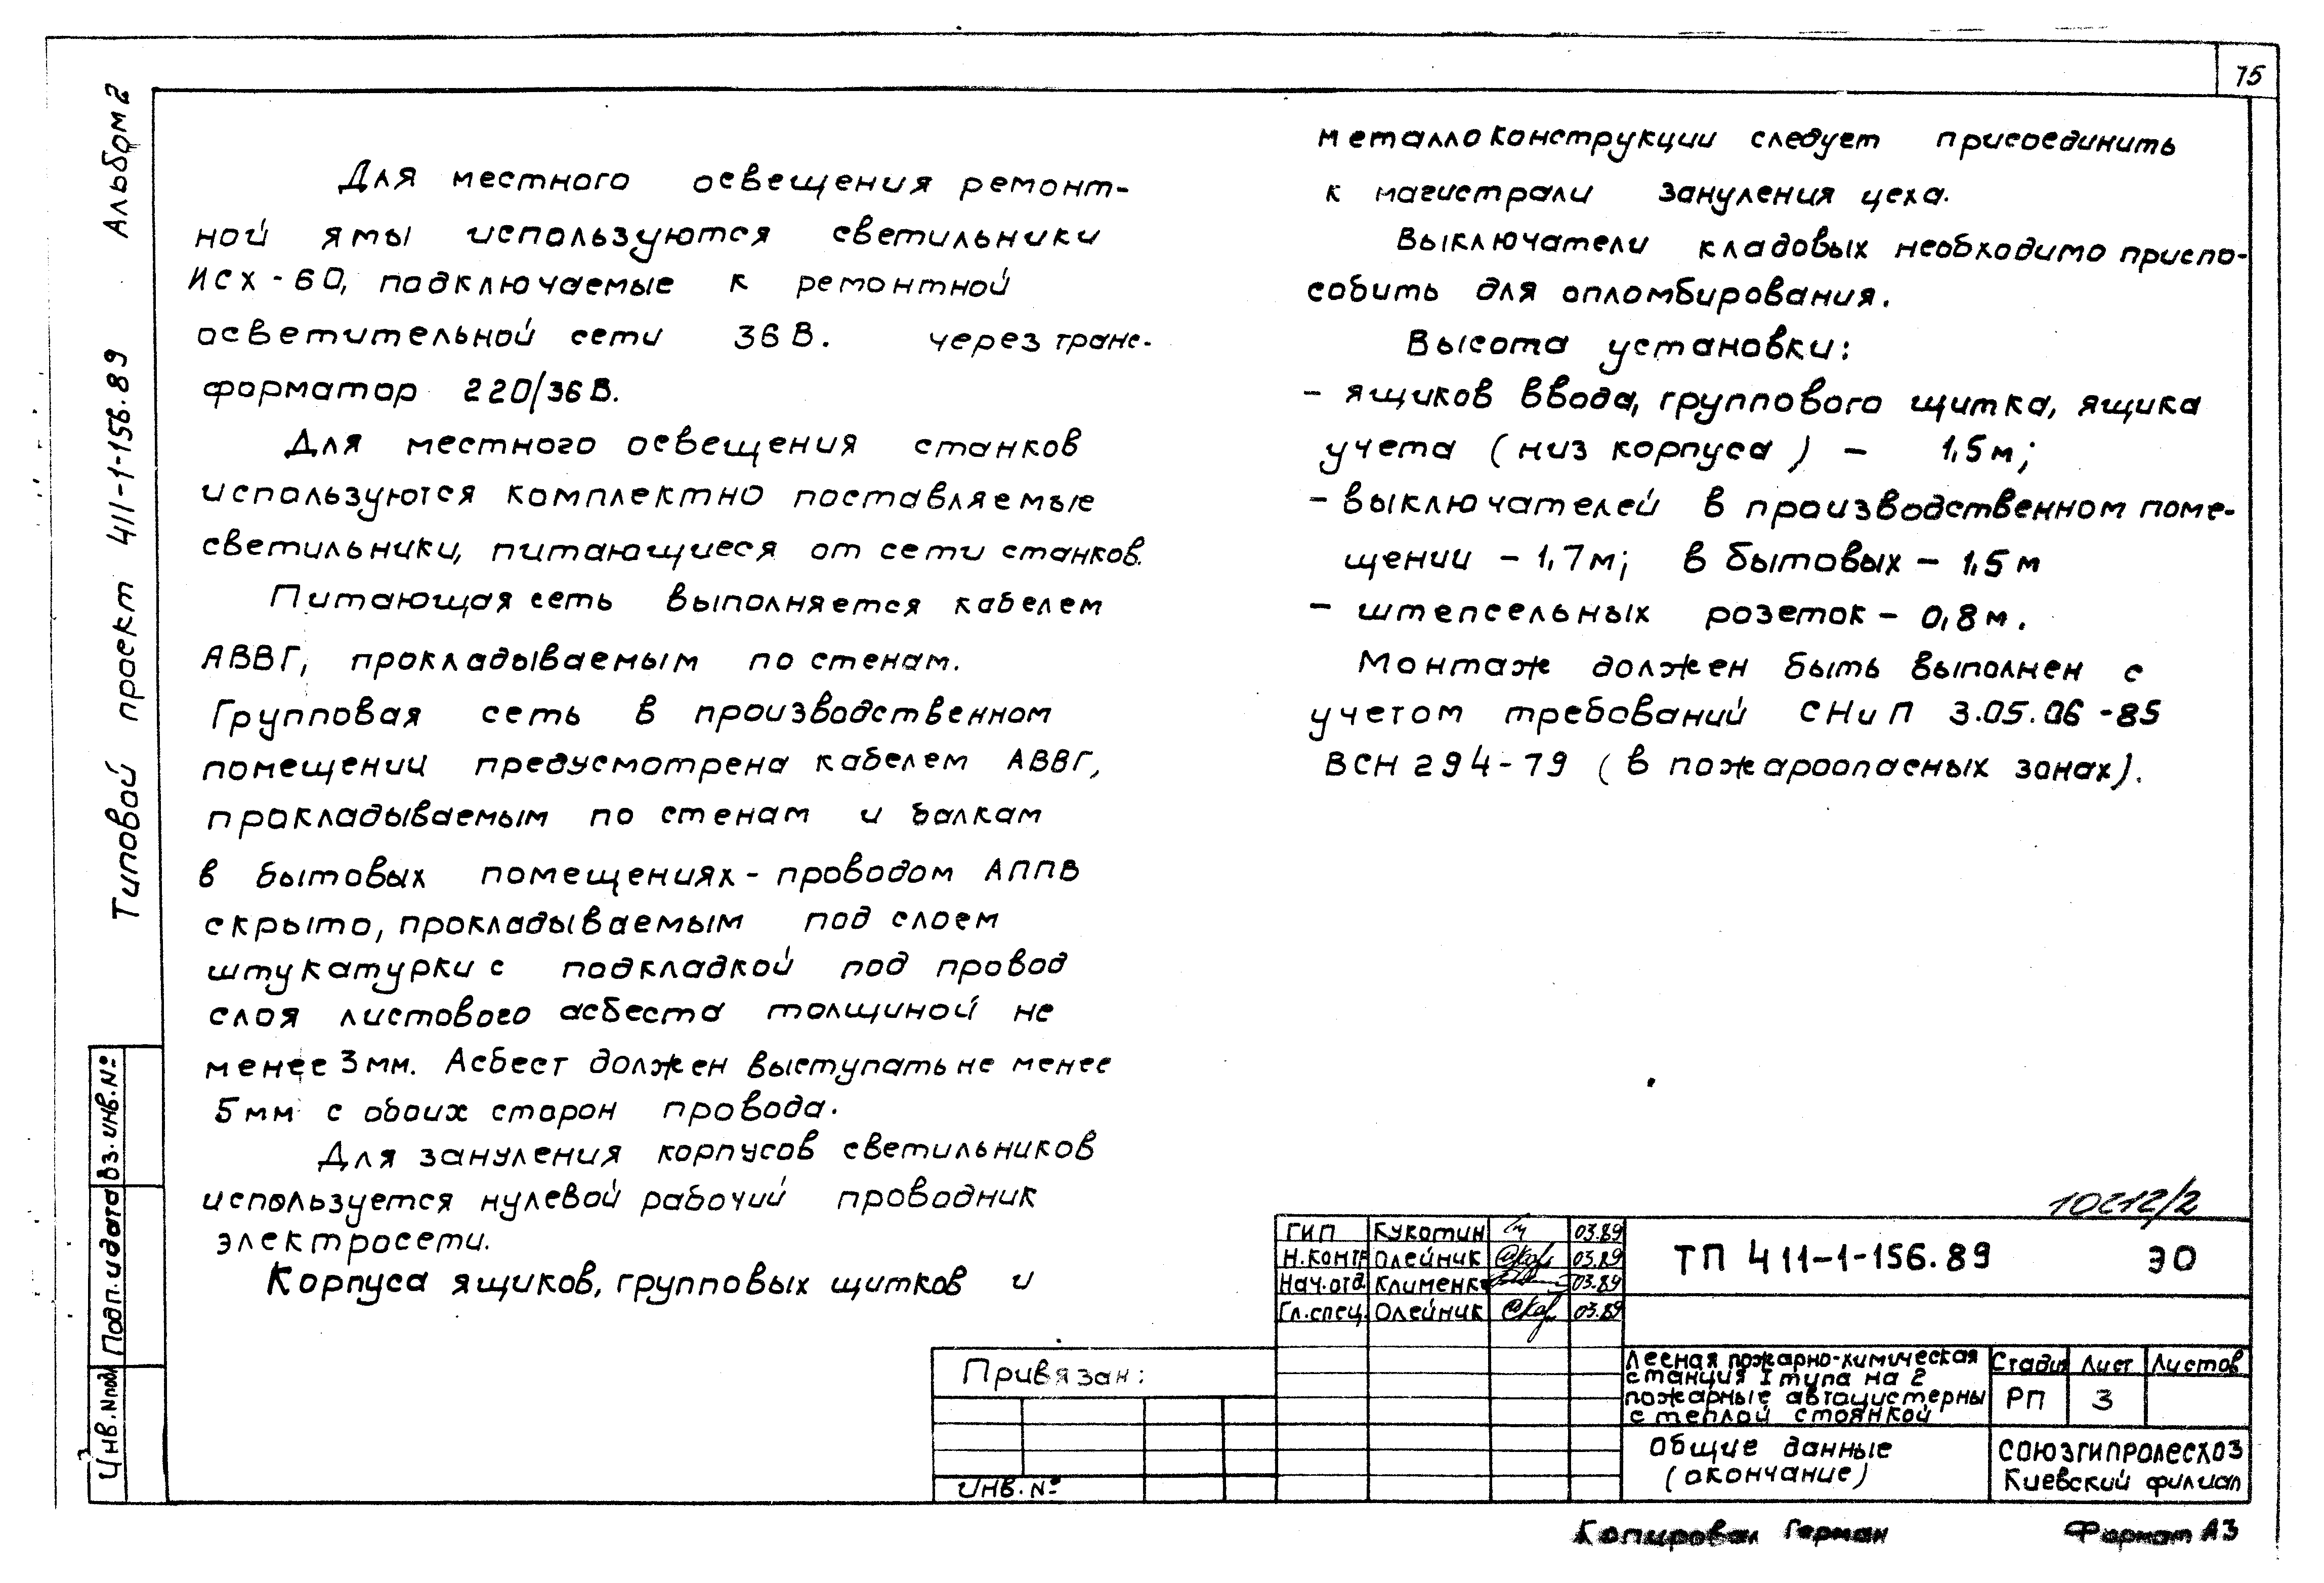 75
Альбом 2
Типовой проект 411-1-156.89
Для местного освещения ремонт-
ной ямы используются светильники
ИСХ-60, подключаемые к ремонтной
осветительной сети 36 В. через транс-
форматор 220/36 В.
Для местного освещения станков
используются комплектно поставляемые
светильники, питающиеся от сети станков.
Питающая сеть выполняется кабелем
АВВГ, прокладываемым по стенам.
Групповая сеть в производственном
помещении предусмотрена кабелем АВВГ,
прокладываемым по стенам и балкам
в бытовых помещениях - проводом АППВ
скрыто, прокладываемым под слоем
штукатурки с подкладкой под провод
слоя листового асбеста толщиной не
менее 3 мм. Асбест должен выступать не менее
5 мм с обоих сторон провода.
Для зануления корпусов светильников
используется нулевой рабочий проводник
электросети.
Корпуса ящиков, групповых щитков и
металлоконструкции следует присоединить
к магистрали зануления цеха.
Выключатели кладовых необходимо приспо-
собить для опломбирования.
Высота установки:
- ящиков ввода, группового щитка, ящика
учета (низ корпуса) - 1,5 м;
- выключателей в производственном поме-
щении - 1,7 м; в бытовых - 1,5 м
- штепсельных розеток - 0,8 м.
Монтаж должен быть выполнен с
учетом требований СНиП 3.05.06-85
ВСН 294-79 (в пожароопасных зонах).
Вз. инв. №
Подп. и дата
Инв. № подл
10212/2
ГИП Кукотин 03.89
Н.контр Олейник 03.89
Нач.отд. Клименко 03.89
Гл.спец. Олейник 03.89
ТП 411-1-156.89 ЭО
Лесная пожарно-химическая
станция I типа на 2
пожарные автоцистерны
с теплой стоянкой
Стадия Лист Листов
РП 3
Общие данные
(окончание)
СОЮЗГИПРОЛЕСХОЗ
Киевский филиал
Привязан:
Инв. №
Копировал Герман
Формат А3